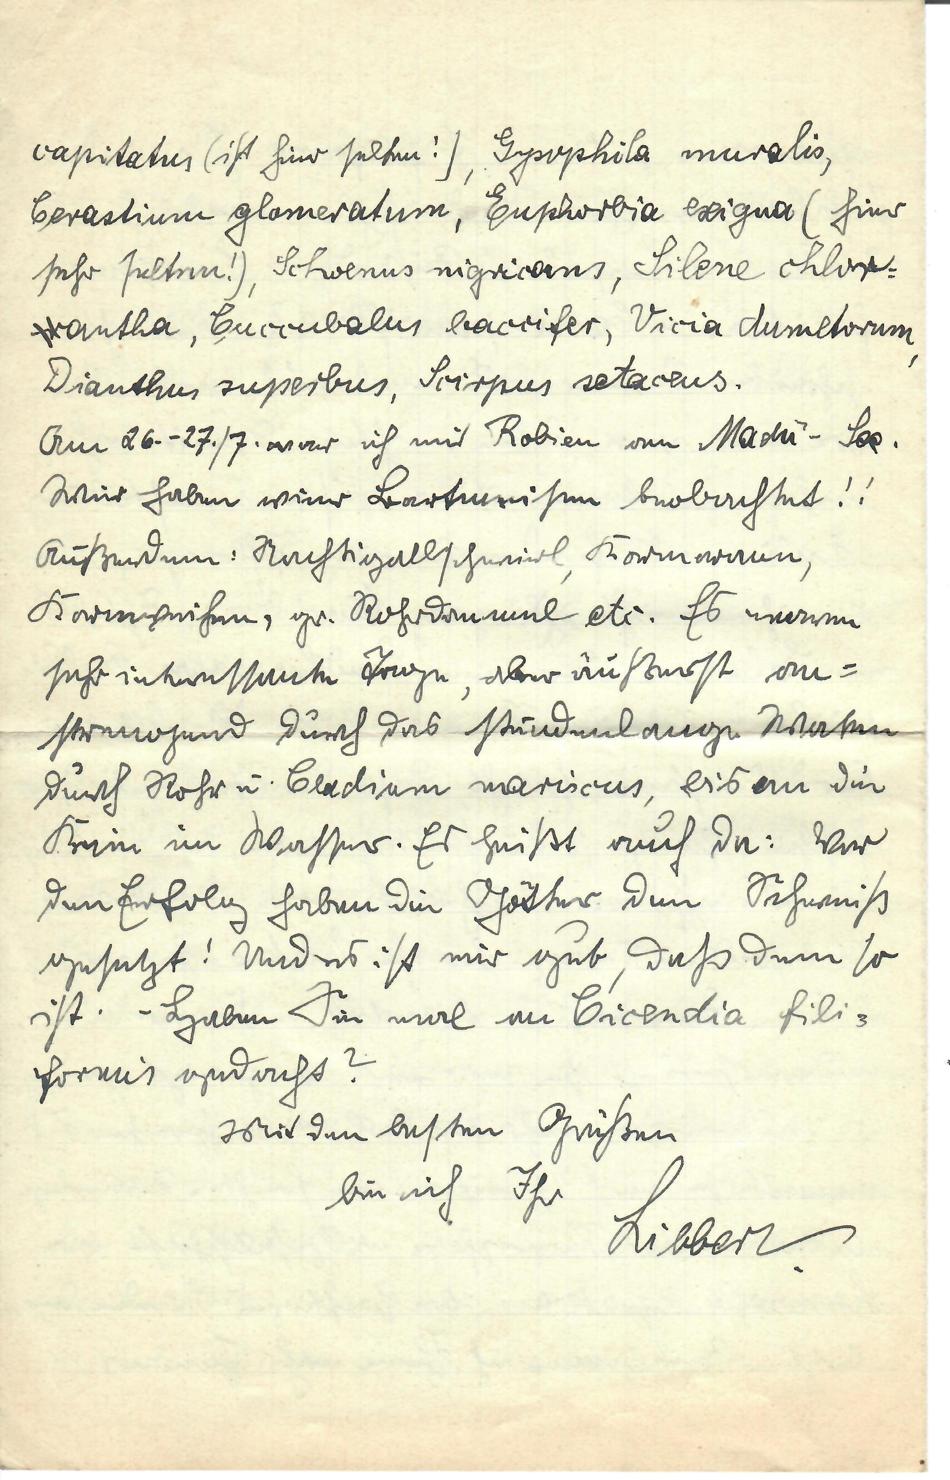 capitatus (ist hier selten!), Gypsophila muralis,
Cerastium glomeratum, Euphorbia exigua (hier
sehr selten!), Schoenus nigricans, Silene chlor-
antha, Cuccubalus baccifer, Vicia dumetorum,
Dianthus superbus, Scirpus setaceus.
Am 26.-27./7. war ich mit Robien am Madü-See.
Wir haben vier Bartmeisen beobachtet!!
Außerdem: Nachtigallschwirl, Kormorane,
Kornweihen, gr. Rohrdommel etc. Es waren
sehr interessante Tage, aber äußerst an=
strengend durch das stundenlange Waten
durch Rohr u. Cladium mariscus, bis an die
Knie im Wasser. Es heißt auch da: Vor
den Erfolg haben die Götter den Schweiß
gesetzt! Und es ist mir gut, daß dem so
ist. - Haben Sie mal an Cicendia fili=
formis gedacht?
Mit den besten Grüßen
bin ich Ihr
Libbert.